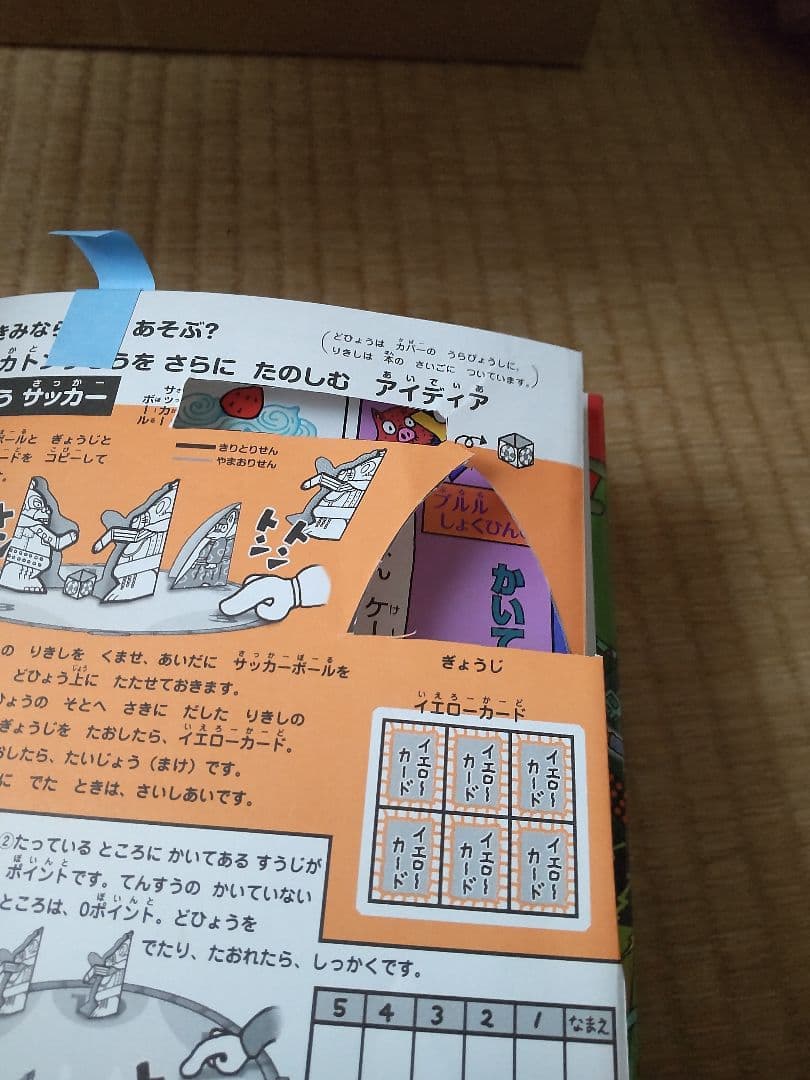 あそぶ?
どひょうは カバーの うらびょうしに、
りきしは 本の さいごに ついています。
さらに たのしむ アイディア
サッカー
サッカーボール
きりとりせん
やまおりせん
ボールと ぎょうじと
コピーして
トントン
ブルル
しょくひん
かいて
ケー
りきしを くませ、あいだに サッカーボールを
どひょう上に たたせておきます。
そとへ さきに だした りきしの
ぎょうじを たおしたら、イエローカード。
たいじょう(まけ)です。
でた ときは、さいしあいです。
ぎょうじ
イエローカード
イエローカード
イエローカード
イエローカード
イエローカード
イエローカード
イエローカード
②たっている ところに かいてある すうじが
ポイントです。てんすうの かいていない
ところは、0ポイント。どひょうを
でたり、たおれたら、しっかくです。
5 4 3 2 1 なまえ